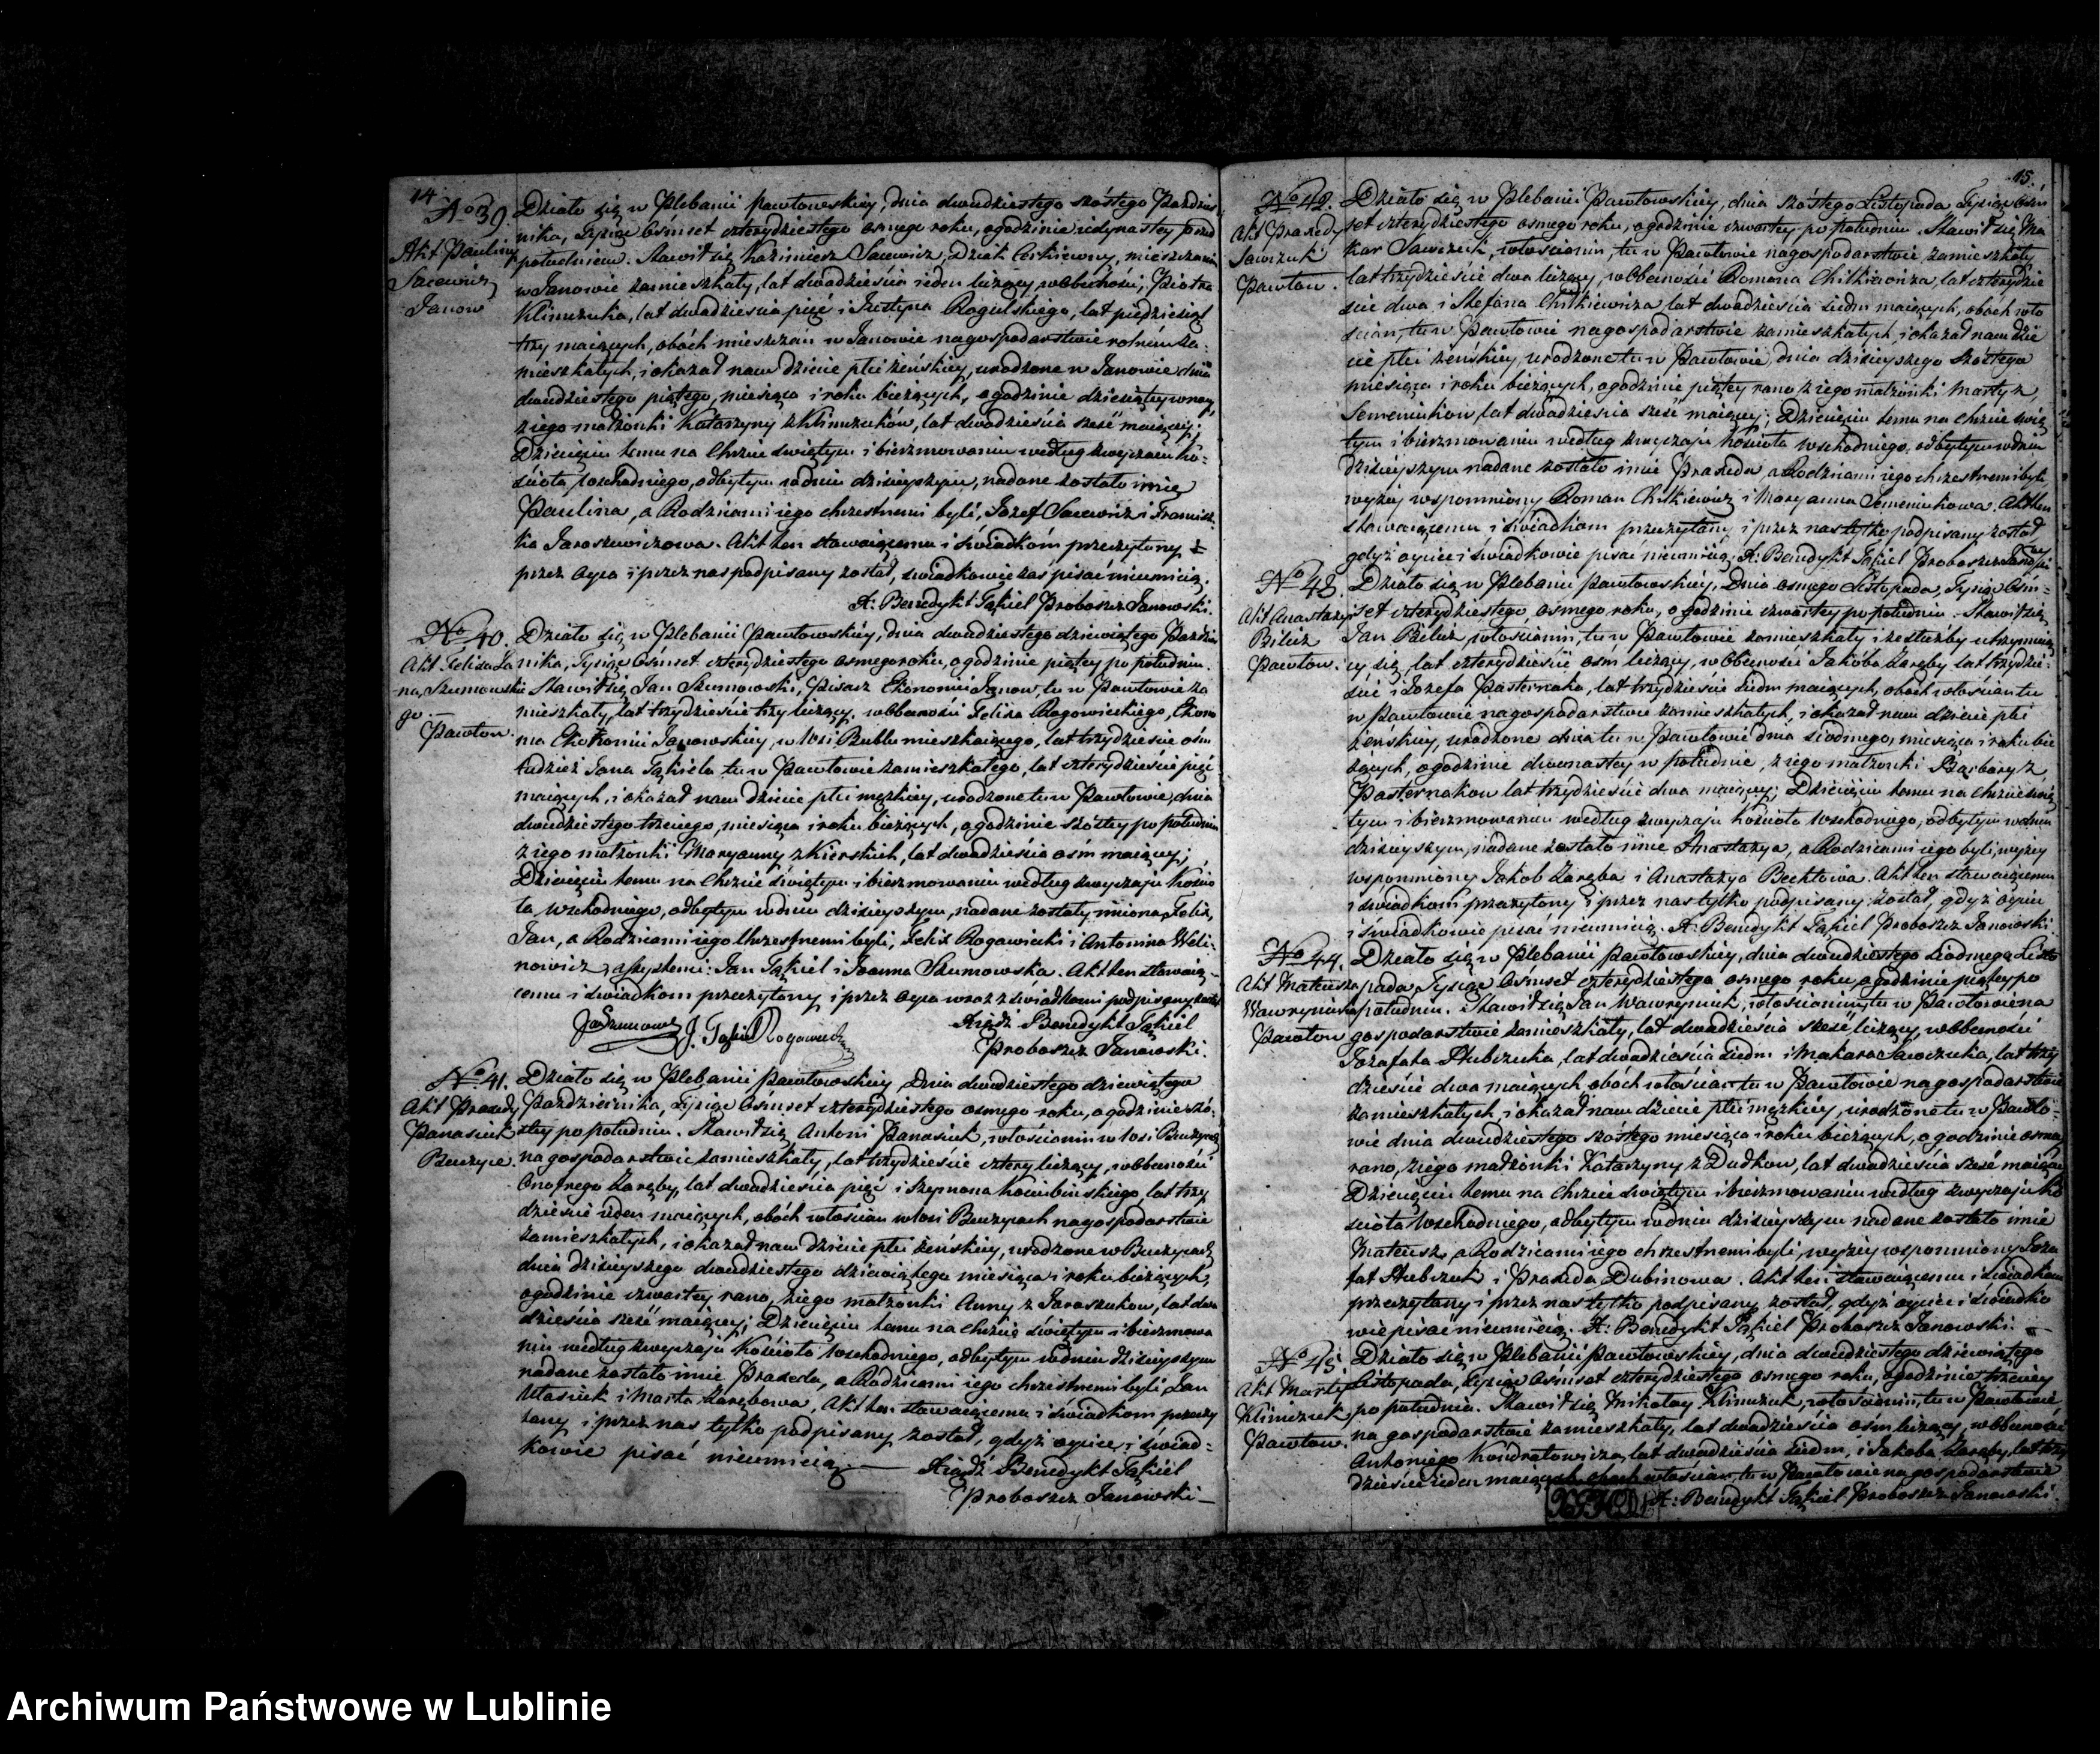 14
No 39.
Akt Pauliny
Sacewicz
Janow
Działo się w Plebanii Pawłowskiey, dnia dwudziestego szóstego Paździer
nika, Tysiąc Ośmset czterydziestego osmego roku, o godzinie iedynastey przed
południem. Stawił się Kazimierz Sacewicz, Dziak Cerkiewny, mieszczanin
w Janowie zamieszkały, lat dwadzieścia ieden liczący, w Obecności, Piotra
Klimczuka, lat dwadzieścia pięć i Justyna Rogulskiego, lat piędziesiąt
trzy maiących, obóch mieszczan w Janowie na gospodarstwie rolném za-
mieszkałych, i okazał nam dziecie płci żeńskiey, urodzone w Janowie dnia
dwudziestego piątego, miesiąca i roku bieżących, o godzinie dziesiątey w nocy,
z iego małżonki Katarzyny z Klimczuków, lat dwadzieścia sześć maiącey;
Dziecięciu temu na Chrzcie świętym i bierzmowaniu według zwyczaiu Ko-
ścioła wschodniego, odbytym w dniu dzisieyszym, nadane zostało imię
Paulina, a Rodzicami iego chrzestnemi byli, Jozef Sacewicz i Francisz-
ka Jaroszewiczowa. Akt ten stawaiącemu i świadkóm przeczytany i
przez Oyca i przez nas podpisany został, świadkowie zaś pisać nieumieią.
X: Benedykt Tąkiel Proboszcz Janowski.
No 40.
Akt Felixa Ja
na, Szumowskie
go —
Pawłow.
Działo się w Plebanii Pawłowskiéy, dnia dwudziestego dziewiątego Paździer
nika, Tysiąc Ośmset czterydziestego osmego roku, o godzinie piątey po południu.
Stawił się Jan Szumowski, Pisarz Ekonomii Janow, tu w Pawłowie za
mieszkały, lat trzydzieście trzy liczący, w Obecności Felixa Rogowieckiego, Ekono
ma Ekonomii Janowskiey, w Wsi Bublu mieszkaiącego, lat trzydzieście ośm
tudzież Jana Tąkiela tu w Pawłowie zamieszkałego, lat czterydzieście pięć
maiących, i okazał nam dziecie płci męzkiey, urodzone tu w Pawłowie, dnia
dwudziestego trzeciego, miesiąca i roku bieżących, o godzinie szóstey po południu
z iego małżonki Maryanny z Kierskich, lat dwadzieścia ośm maiącey;
Dziecięciu temu na Chrzcie świętym i bierzmowaniu według zwyczaju Kościo
ła Wschodniego, odbytym w dniu dzisieyszym, nadane zostały imiona, Felix,
Jan, a Rodzicami iego Chrzestnemi byli, Felix Rogowiecki i Antonina Weli-
nowicz, assystenci: Jan Tąkiel i Joanna Szumowska. Akt ten stawaią-
cemu i świadkom przeczytany i przez Oyca wraz z świadkami podpisany został
J Szumowski J. Tąkiel Rogowiecki
Xiądz Benedykt Tąkiel
Proboszcz Janowski.
No 41.
Akt Praxedy
Panasiuk
Buczyce.
Działo się w Plebanii Pawłowskiey Dnia dwudziestego dziewiątego
Października, Tysiąc Ośmset czterydziestego osmego roku, o godzinie szó-
stey po południu. Stawił się Antoni Panasiuk, włościanin w Wsi Buczycach
na gospodarstwie zamieszkały, lat trzydzieście cztery liczący, w Obecności
Onofrego Zaręby, lat dwadzieścia pięć i Szymona Kociubinskiego, lat trzy
dzieście ieden maiących, obóch włościan w Wsi Buczycach na gospodarstwie
zamieszkałych, i okazał nam dziecie płci żeńskiey, urodzone w Buczycach
dnia dzisieyszego dwudziestego dziewiątego miesiąca i roku bieżących,
o godzinie czwartey rano, z iego małżonki Anny z Jaroszukow, lat dwa
dzieścia sześć maiącey; Dziecięciu temu na Chrzcie świętym i bierzmowa
niu według zwyczaju Kościoła Wschodniego, odbytym w dniu dzisieyszym
nadane zostało imie Praxeda, a Rodzicami iego chrzestnemi byli Jan
Własiuk i Marta Zarębowa, Akt ten stawaiącemu i świadkom przeczy
tany i przez nas tylko podpisany został, gdyż oyciec i świad-
kowie pisać nieumieią. —
Xiądz Benedykt Tąkiel
Proboszcz Janowski —
15.
No 42.
Akt Praxedy
Sawczuk
Pawłow.
Działo się w Plebanii Pawłowskiey, dnia szóstego Listopada Tysiąc Ośm
set czterydziestego osmego roku, o godzinie czwartey po południu. Stawił się Ma
kar Sawczuk, włościanin, tu w Pawłowie na gospodarstwie zamieszkały
lat trzydzieście dwa liczący, w Obecności Romana Chilkiewicza, lat czterydzie
ście dwa i Stefana Chilkiewicza lat dwadzieścia siedm maiących, obóch wło
ścian, tu w Pawłowie na gospodarstwie zamieszkałych, i okazał nam dzie
cie płci żeńskiey, urodzone tu w Pawłowie, dnia dzisieyszego szóstego
miesiąca i roku bieżących, o godzinie piątey rano z iego małżonki Marty z
Semeniukow, lat dwadzieścia sześć maiącey; Dziecięciu temu na Chrzcie świę
tym i bierzmowaniu według zwyczaju Kościoła Wschodniego, odbytym w dniu
dzisieyszym nadane zostało imie Praxeda, a Rodzicami iego chrzestnemi byli
wyżey wspomniony Roman Chilkiewicz i Maryanna Semeniukowa. Akt ten
stawaiącemu i świadkom przeczytany i przez nas tylko podpisany został
gdyż oyciec i świadkowie pisać nieumieią. X: Benedykt Tąkiel Proboszcz Janowski
No 43.
Akt Anastazyi
Biluz
Pawłow.
Działo się w Plebanii Pawłowskiey, Dnia osmego Listopada, Tysiąc Ośm-
set czterydziestego osmego roku, o godzinie czwartey po południu. Stawił się
Jan Biluz włościanin, tu w Pawłowie zamieszkały i ze służby utrzymuią
cy się, lat czterydzieście ośm liczący, w Obecności Jakóba Zaręby lat trzydzie-
ście i Jozefa Pasternaka, lat trzydzieście siedm maiących, obóch włościan tu
w Pawłowie na gospodarstwie zamieszkałych, i okazał nam dziecie płci
żeńskiey, urodzone dnia tu w Pawłowie dnia siodmego, miesiąca i roku bie
żących, o godzinie dwunastey w południe, z iego małżonki Barbary z
Pasternakow lat trzydzieście dwa maiącey; Dziecięciu temu na Chrzcie świę
tym i bierzmowaniu według zwyczaju Kościoła Wschodniego, odbytym w dniu
dzisieyszym, nadane zostało imie Anastazya, a Rodzicami iego byli, wyżey
wspomniony Jakob Zaręba i Anastazya Bechtowa. Akt ten stawaiącemu
i świadkom przeczytany i przez nas tylko podpisany został, gdyż oyciec
i świadkowie pisać nieumieią. X: Benedykt Tąkiel Proboszcz Janowski.
No 44.
Akt Mateusza
Wawryniuka
Pawłow
Działo się w Plebanii Pawłowskiey, dnia dwudziestego siodmego Listo
pada Tysiąc Ośmset czterydziestego osmego roku, o godzinie piątey po
południu. Stawił się Jan Wawryniuk, włościanin, tu w Pawłowie na
gospodarstwie zamieszkały, lat dwadzieścia sześć liczący, w Obecności
Jozafata Hubczuka, lat dwadzieścia siedm i Makara Sawczuka, lat trzy
dzieście dwa maiących obóch włościan tu w Pawłowie na gospodarstwie
zamieszkałych, i okazał nam dziecie płci męzkiéy, urodzone tu w Pawło-
wie dnia dwudziestego szóstego miesiąca i roku bieżących, o godzinie osmey
rano, z iego małżonki Katarzyny z Dudkow, lat dwadzieścia sześć maiącey
Dziecięciu temu na Chrzcie świętym i bierzmowaniu według zwyczaju Ko
ścioła Wschodniego, odbytym w dniu dzisieyszym nadane zostało imie
Mateusz, a Rodzicami iego chrzestnemi byli, wyżey wspomniony Joza
fat Hubczuk i Praxeda Dubinowa. Akt ten stawaiącemu i świadkom
przeczytany i przez nas tylko podpisany został, gdyż oyciec i świadko
wie pisać nieumieią. X: Benedykt Tąkiel Proboszcz Janowski. —
No 45.
Akt Marty
Klimczuk
Pawłow.
Działo się w Plebanii Pawłowskiey, dnia dwudziestego dziewiątego
Listopada, Tysiąc Ośmset czterydziestego osmego roku, o godzinie trzeciey
po południu. Stawił się Mikołay Klimczuk, włościanin, tu w Pawłowie
na gospodarstwie zamieszkały, lat dwadzieścia ośm liczący, w Obecności
Antoniego Kondratowicza, lat dwadzieścia siedm, i Jakoba Zaręby, lat trzy
dzieście ieden maiących obóch włościan, tu w Pawłowie na gospodarstwie
X: Benedykt Tąkiel Proboszcz Janowski.
Archiwum Państwowe w Lublinie